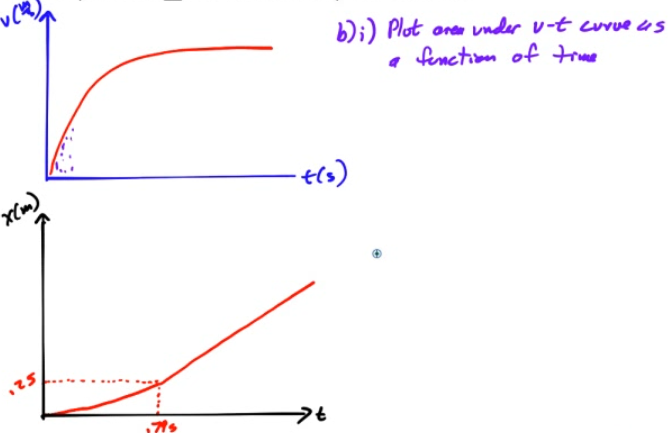 v(m/s)
b)i) Plot area under v-t curve as
a function of time
t(s)
x(m)
.25
t
.79s